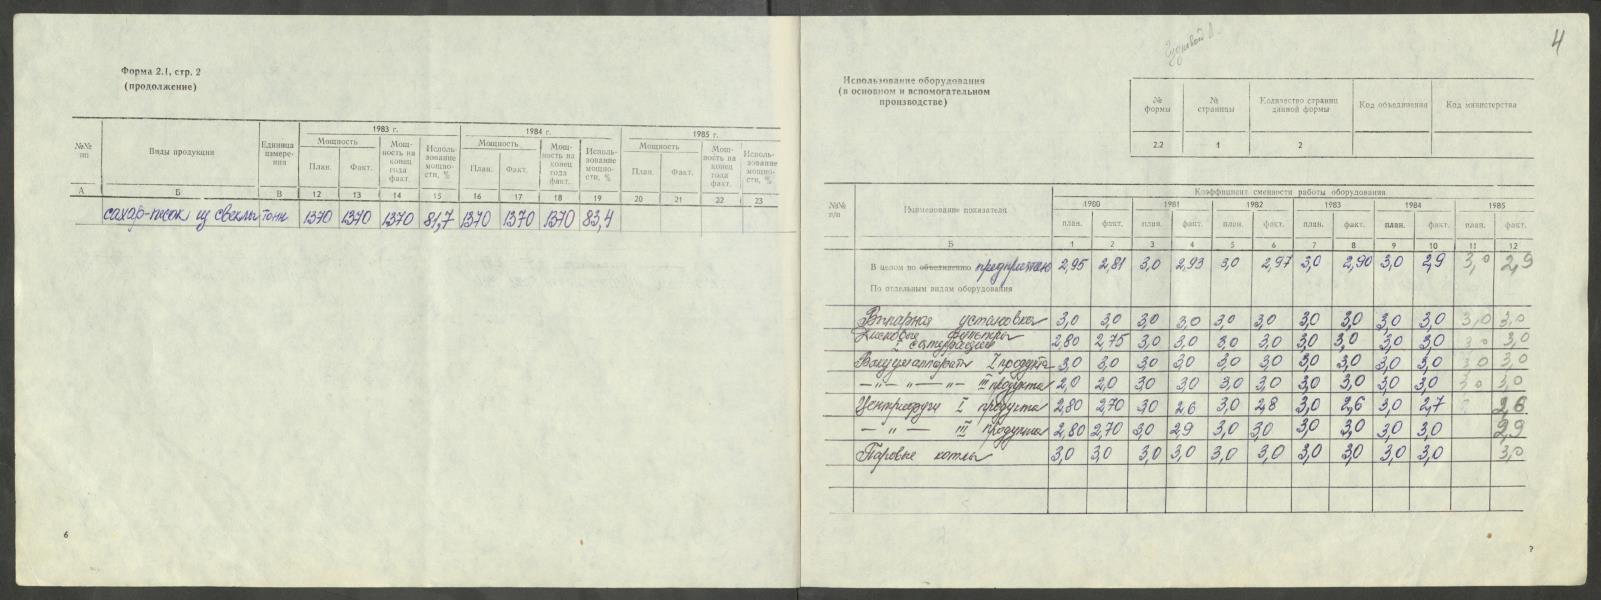 Форма 2.1, стр. 2
(продолжение)
№№ пп | Виды продукции | Единица измерения | 1983 г. | 1984 г. | 1985 г.
Мощность | Мощность на конец года факт. | Использование мощности, % | Мощность | Мощность на конец года факт. | Использование мощности, % | Мощность | Мощность на конец года факт. | Использование мощности, %
План. | Факт. | План. | Факт. | План. | Факт.
А | Б | В | 12 | 13 | 14 | 15 | 16 | 17 | 18 | 19 | 20 | 21 | 22 | 23
сахар-песок из свеклы | тонн | 1370 | 1370 | 1370 | 81,7 | 1370 | 1370 | 1370 | 83,4
6
4
Использование оборудования
(в основном и вспомогательном
производстве)
№ формы | № страницы | Количество страниц данной формы | Код объединения | Код министерства
2.2 | 1 | 2
№№ п/п | Наименование показателя | Коэффициент сменности работы оборудования
1980 | 1981 | 1982 | 1983 | 1984 | 1985
план. | факт. | план. | факт. | план. | факт. | план. | факт. | план. | факт. | план. | факт.
Б | 1 | 2 | 3 | 4 | 5 | 6 | 7 | 8 | 9 | 10 | 11 | 12
В целом по объединению предприятию | 2,95 | 2,81 | 3,0 | 2,93 | 3,0 | 2,97 | 3,0 | 2,90 | 3,0 | 2,9 | 3,0 | 2,9
По отдельным видам оборудования
Выпарная установка | 3,0 | 3,0 | 3,0 | 3,0 | 3,0 | 3,0 | 3,0 | 3,0 | 3,0 | 3,0 | 3,0 | 3,0
Дисковые фильтры I сатурации | 2,80 | 2,75 | 3,0 | 3,0 | 3,0 | 3,0 | 3,0 | 3,0 | 3,0 | 3,0 | 3,0 | 3,0
Вакуумаппараты I продукта | 3,0 | 3,0 | 3,0 | 3,0 | 3,0 | 3,0 | 3,0 | 3,0 | 3,0 | 3,0 | 3,0 | 3,0
— " — " — " — III продукта | 2,0 | 2,0 | 3,0 | 3,0 | 3,0 | 3,0 | 3,0 | 3,0 | 3,0 | 3,0 | 3,0 | 3,0
Центрифуги I продукта | 2,80 | 2,70 | 3,0 | 2,6 | 3,0 | 2,8 | 3,0 | 2,6 | 3,0 | 2,7 | 2,6
— " — III продукта | 2,80 | 2,70 | 3,0 | 2,9 | 3,0 | 3,0 | 3,0 | 3,0 | 3,0 | 3,0 | 2,9
Паровые котлы | 3,0 | 3,0 | 3,0 | 3,0 | 3,0 | 3,0 | 3,0 | 3,0 | 3,0 | 3,0 | 3,0
7